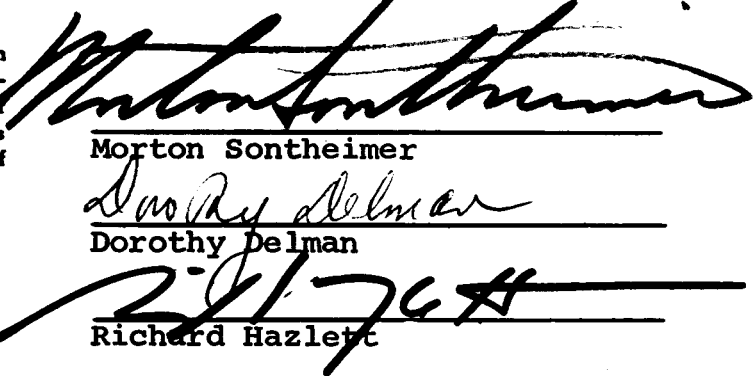 Morton Sontheimer
Morton Sontheimer
Dorothy Delman
Dorothy Delman
Richard Hazlett